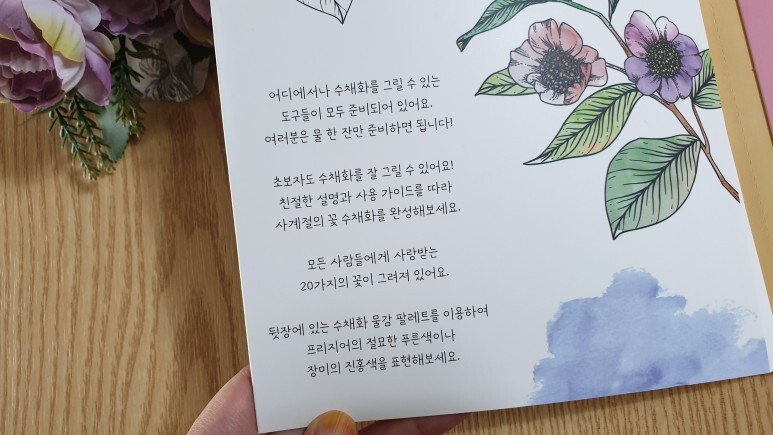 어디에서나 수채화를 그릴 수 있는
도구들이 모두 준비되어 있어요.
여러분은 물 한 잔만 준비하면 됩니다!
초보자도 수채화를 잘 그릴 수 있어요!
친절한 설명과 사용 가이드를 따라
사계절의 꽃 수채화를 완성해보세요.
모든 사람들에게 사랑받는
20가지의 꽃이 그려져 있어요.
뒷장에 있는 수채화 물감 팔레트를 이용하여
프리지어의 절묘한 푸른색이나
장미의 진홍색을 표현해보세요.